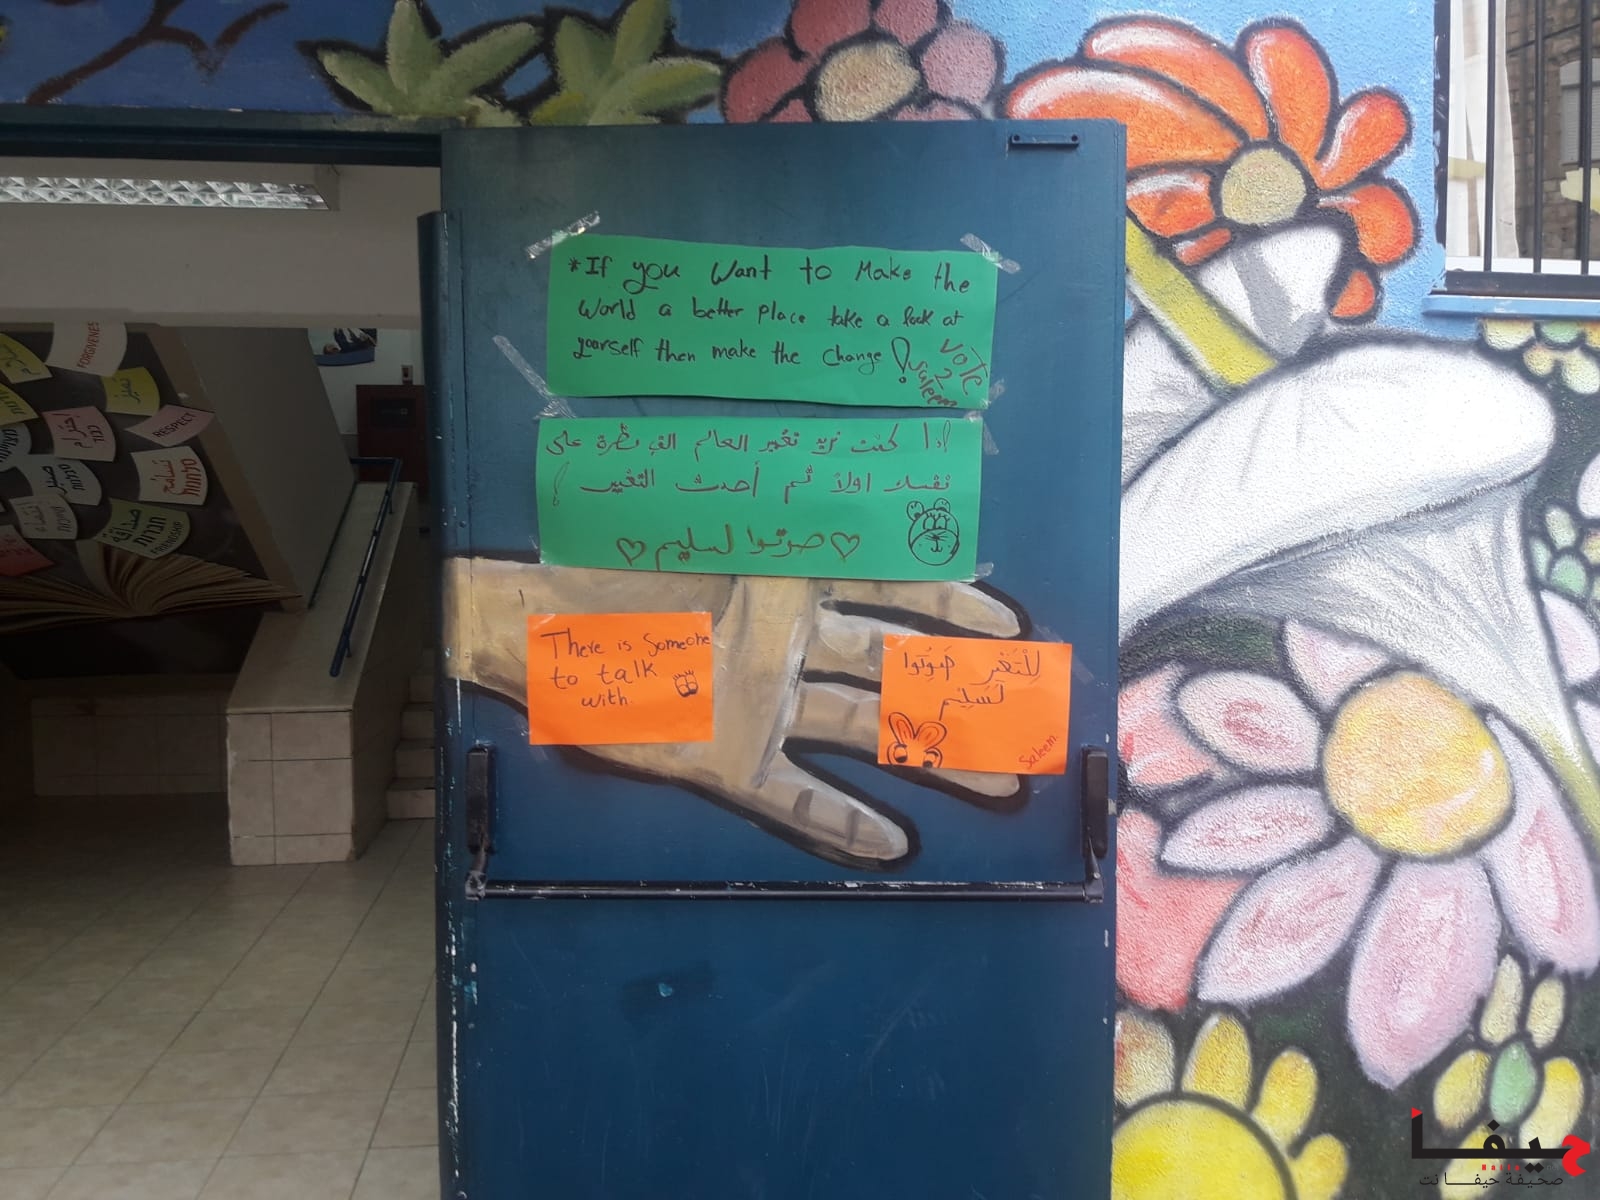 *If you want to Make the
World a better place take a look at
yourself then make the change!
VOTE
2
Saleem
إذا كنت تريد تغيير العالم القِ نظرة على
نفسك اولاً ثم أحدث التغيير!
♡صوتوا لسليم♡
There is Someone
to talk
with.
للْتَغَير صَوِتُوا
لسَليم
Saleem.
FORGIVENES
تميز
إحترام
כבוד
RESPECT
تسامح
סלחנות
صبر
סבלנות
صداقة
חברות
FRIENDSHIP
حيفا
Haifa
صحيفة حيفا نت